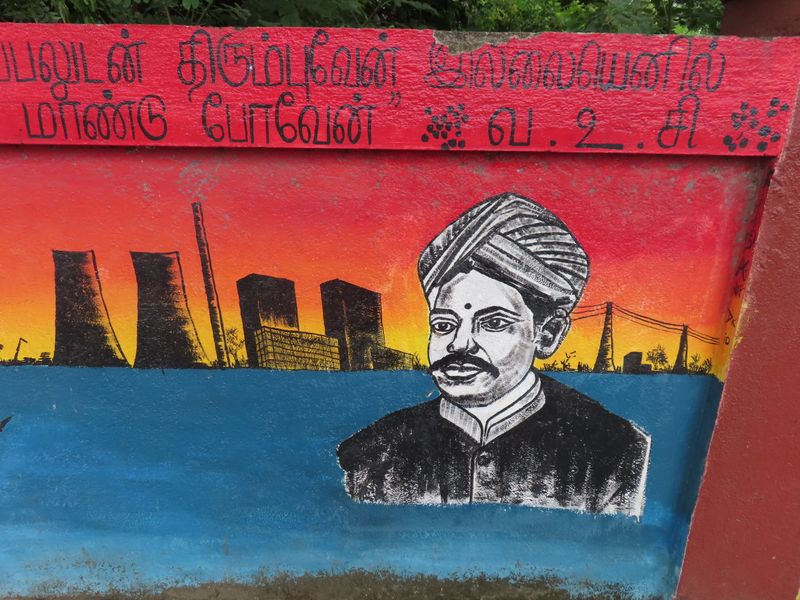 பலுடன் திரும்புவேன் இல்லையெனில்
மாண்டு போவேன்" வ . உ . சி